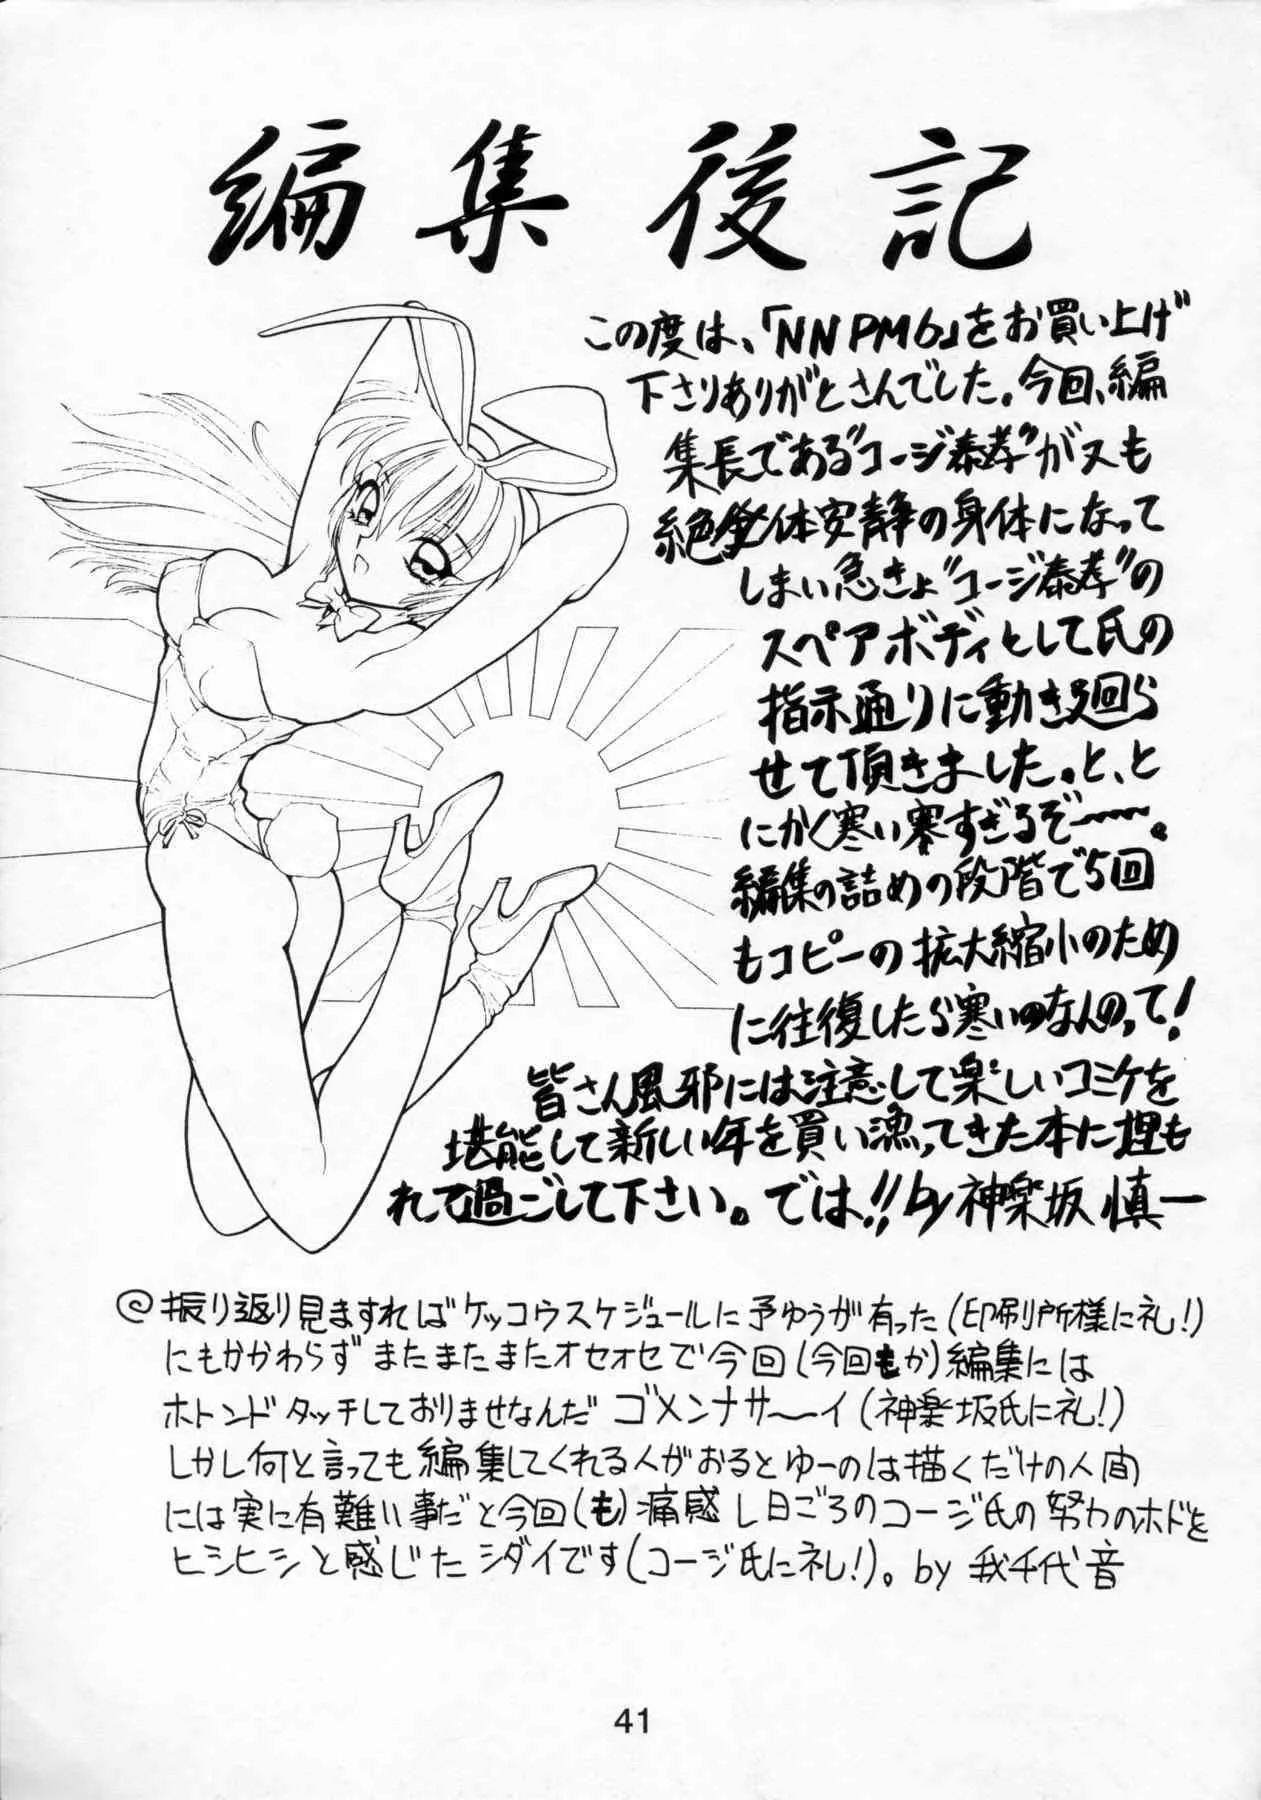 編集後記
この度は、「NNPM6」をお買い上げ
下さりありがとさんでした。今回、編
集長である"コージ泰孝"がヌも
絶対安静の身体になって
しまい急きょ"コージ泰孝"の
スペアボディとして氏の
指示通りに動き廻ら
せて頂きました。と、と
にかく寒い寒すぎるぞ〜〜〜。
編集の詰めの段階で5回
もコピーの拡大縮小のため
に往復したら寒いのなんのって!
皆さん風邪には注意して楽しいコミケを
堪能して新しい年を買い漁ってきた本に埋も
れて過ごして下さい。では!! by 神楽坂 慎一
@振り返り見ますればケッコウスケジュールに予ゆうが有った(印刷所様に礼!)
にもかかわらずまたまたまたオセオセで今回(今回もか)編集には
ホトンドタッチしておりませなんだゴメンナサ〜イ(神楽坂氏に礼!)
しかし何と言っても編集してくれる人がおるとゆーのは描くだけの人間
には実に有難い事だと今回(も)痛感し日ごろのコージ氏の努力のホドを
ヒシヒシと感じたシダイです(コージ氏に礼!)。by 我千代音
41